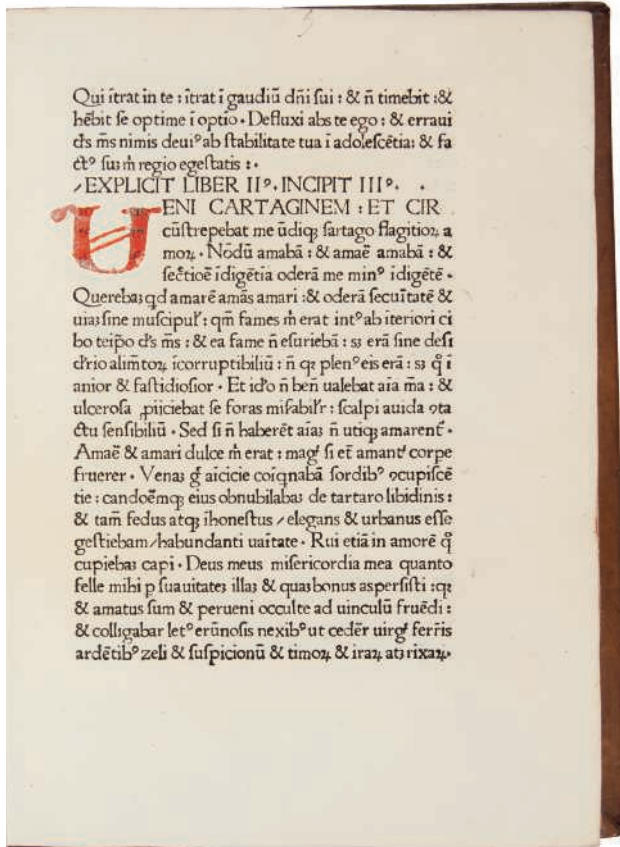 Qui ītrat in te : ītrat ī gaudiū dn̄i sui : & n̄ timebit : &
hēbit se optime ī optio · Defluxi abs te ego : & erraui
d's m̄s nimis deuiꝰ ab stabilitate tua ī adolescētia : & fa
ctꝰ suꝫ m̄ regio egestatis : ·
/ EXPLICIT LIBER IIꝰ · INCIPIT IIIꝰ · ·
UENI CARTAGINEM : ET CIR
cūstrepebat me ūdiqꝫ sartago flagitioꝝ a
moꝝ · Nōdū amabā : & amaē amabā : &
sectioē īdigētia oderā me minꝰ īdigētē ·
Querebaꝫ qd amarē amās amari : & oderā secuītatē &
uiaꝫ sine muscipuł : qm̄ fames m̄ erat intꝰ ab iteriori ci
bo teip̄o d's m̄s : & ea fame n̄ esuriebā : sꝫ erā sine desi
d'rio alim̄toꝝ īcorruptibiliū : n̄ qꝫ plenꝰ eis erā : sꝫ q̊ ī
anior & fastidiosior · Et id'o n̄ ben̄ ualebat aīa m̄a : &
ulcerosa ꝓiiciebat se foras misabiłr : scalpi auida ꝯta
ctu sensibiliū · Sed si n̄ haberēt aīaꝫ n̄ utiqꝫ amarent̄ ·
Amaē & amari dulce m̄ erat : mag̛ si et̄ amant̛ corpe
fruerer · Venaꝫ g̛ aīcicie coīqnabā sordibꝰ ꝯcupiscē
tie : candoēmqꝫ eius obnubilabaꝫ de tartaro libidinis :
& tam̄ fedus atqꝫ īhonestus / elegans & urbanus esse
gestiebam / habundanti uaītate · Rui etiā in amorē q̊
cupiebaꝫ capi · Deus meus misericordia mea quanto
felle mihi p suauitateꝫ illaꝫ & quaꝫ bonus aspersisti : qꝫ
& amatus sum & perueni occulte ad uinculū fruēdi :
& colligabar letꝰ erūnosis nexibꝰ ut cedēr uirg̛ ferr̄is
ardētibꝰ zeli & suspicionū & timoꝝ & iraꝝ atꝫ rixaꝝ ·